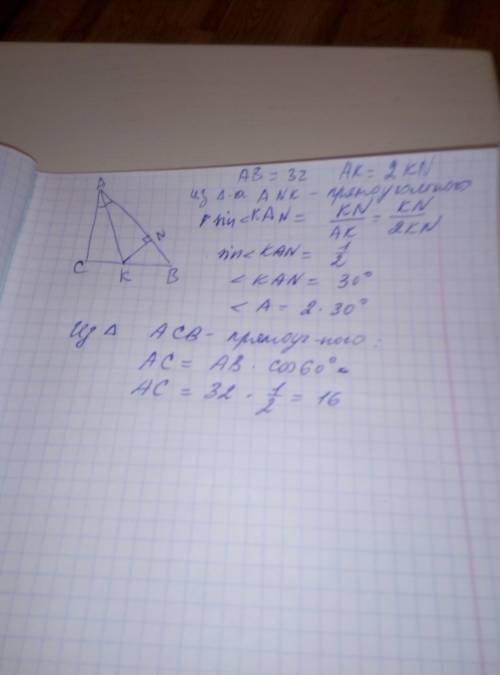 AB = 32 AK = 2KN
из Δ-а ANK - прямоугольного
sin<KAN = KN/AK = KN/2KN
sin<KAN = 1/2
<KAN = 30°
<A = 2·30°
A
N
C K B
Из Δ ACB - прямоуг-ного:
AC = AB · cos60°
AC = 32 · 1/2 = 16